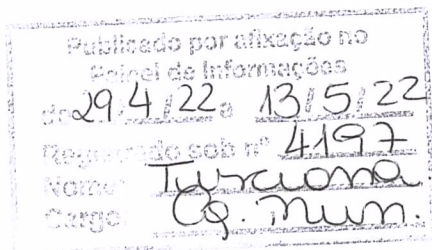 Publicado por afixação no
Painel de Informações
de 29/4/22 a 13/5/22
Registrado sob nº 4197
Nome
Cargo Cg. mun.